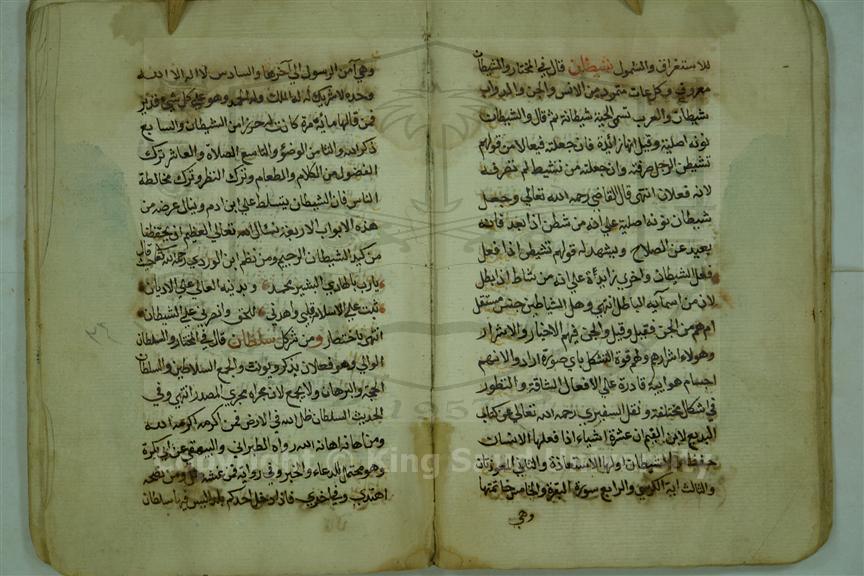 للاستغراق والشمول شيطان قال في المختار والشيطان
معروف وكل عات متمرد من الانس والجن والدواب
شيطان والعرب تسمى الحية شيطانة ثم قال والشيطان
نونه اصلية وقيل انها زائدة فان جعلته فيعالا من قولهم
تشيطن الرجل صرفته وان جعلته من تشيط لم تصرفه
لانه فعلان انتهى قال القاضي رحمه الله تعالى وجعل
شيطان نونه اصلية على انه من شطن اذا بعد فانه
بعيد عن الصلاح ويشهد له قولهم تشيطن اذا فعل
فعل الشيطان واخرى زائدة على انه من شاط اذا بطل
لان من اسمائه الباطل انتهى وهل الشياطين جنس مستقل
ام هم من الجن فقيل وقيل والجن فيهم الاخيار والاشرار
وهولاء اشرارهم ولهم قوة التشكل باي صورة ارادوا لانهم
اجسام هوائية قادرة على الافعال الشاقة والتطور
في شكال مختلفة ونقل السفيري رحمه الله تعالى عن كتاب
البديع لابن القيم ان عشرة اشياء اذا فعلها الانسان
حفظ من الشيطان اولها الاستعاذة والثاني المعوذتان
والثالث اية الكرسي والرابع سورة البقرة والخامس خاتمتها
وهي
وهي آمن الرسول الى آخرها والسادس لا اله الا الله
وحده لا شريك له له الملك وله الحمد وهو على كل شيء قدير
فمن قالها مائة مرة كانت له حرزا من الشيطان والسابع
ذكر الله والثامن الوضوء والتاسع الصلاة والعاشر ترك
الفضول من الكلام والطعام وترك النظر وترك مخالطة
الناس فان الشيطان يتسلط على ابن ادم وينال غرضه من
هذه الابواب الاربعة نسأل الله تعالى العظيم ان يحفظنا
من كيد الشيطان الرجيم ومن نظم ابن الوردي رحمه الله تعالى قال
يا رب بالهادي البشير محمد وبدينه العالي على الاديان
ثبت على الاسلام قلبي واهدني للحق وانصرني على الشيطان
انتهى باختصار ومن شر كل سلطان قال في المختار والسلطان
الوالي وهو فعلان يذكر ويونث والجمع السلاطين والسلطان
الحجة والبرهان ولا يجمع لان مجراه مجرى المصدر انتهى وفي
الحديث السلطان ظل الله في الارض فمن اكرمه اكرمه الله
ومن اهانه اهانه الله رواه الطبراني والبيهقي عن ابي بكرة
وهو محتمل للدعاء والخبر وفي رواية فمن غشه ضل ومن نصحه
اهتدى وفي اخرى فاذا دخل احدكم بلدا ليس فيها سلطان
Copyright © King Saud University
1957